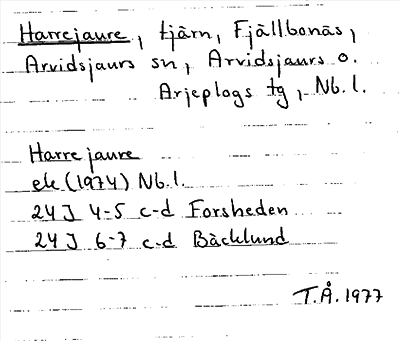 Harrejaure, tjärn, Fjällbonäs,
Arvidsjaurs sn, Arvidsjaurs o.
Arjeplogs tg, Nb.l.
Harrejaure
ek (1974) Nb.l.
24J 4-5 c-d Forsheden
24J 6-7 c-d Bäcklund
T.Å. 1977